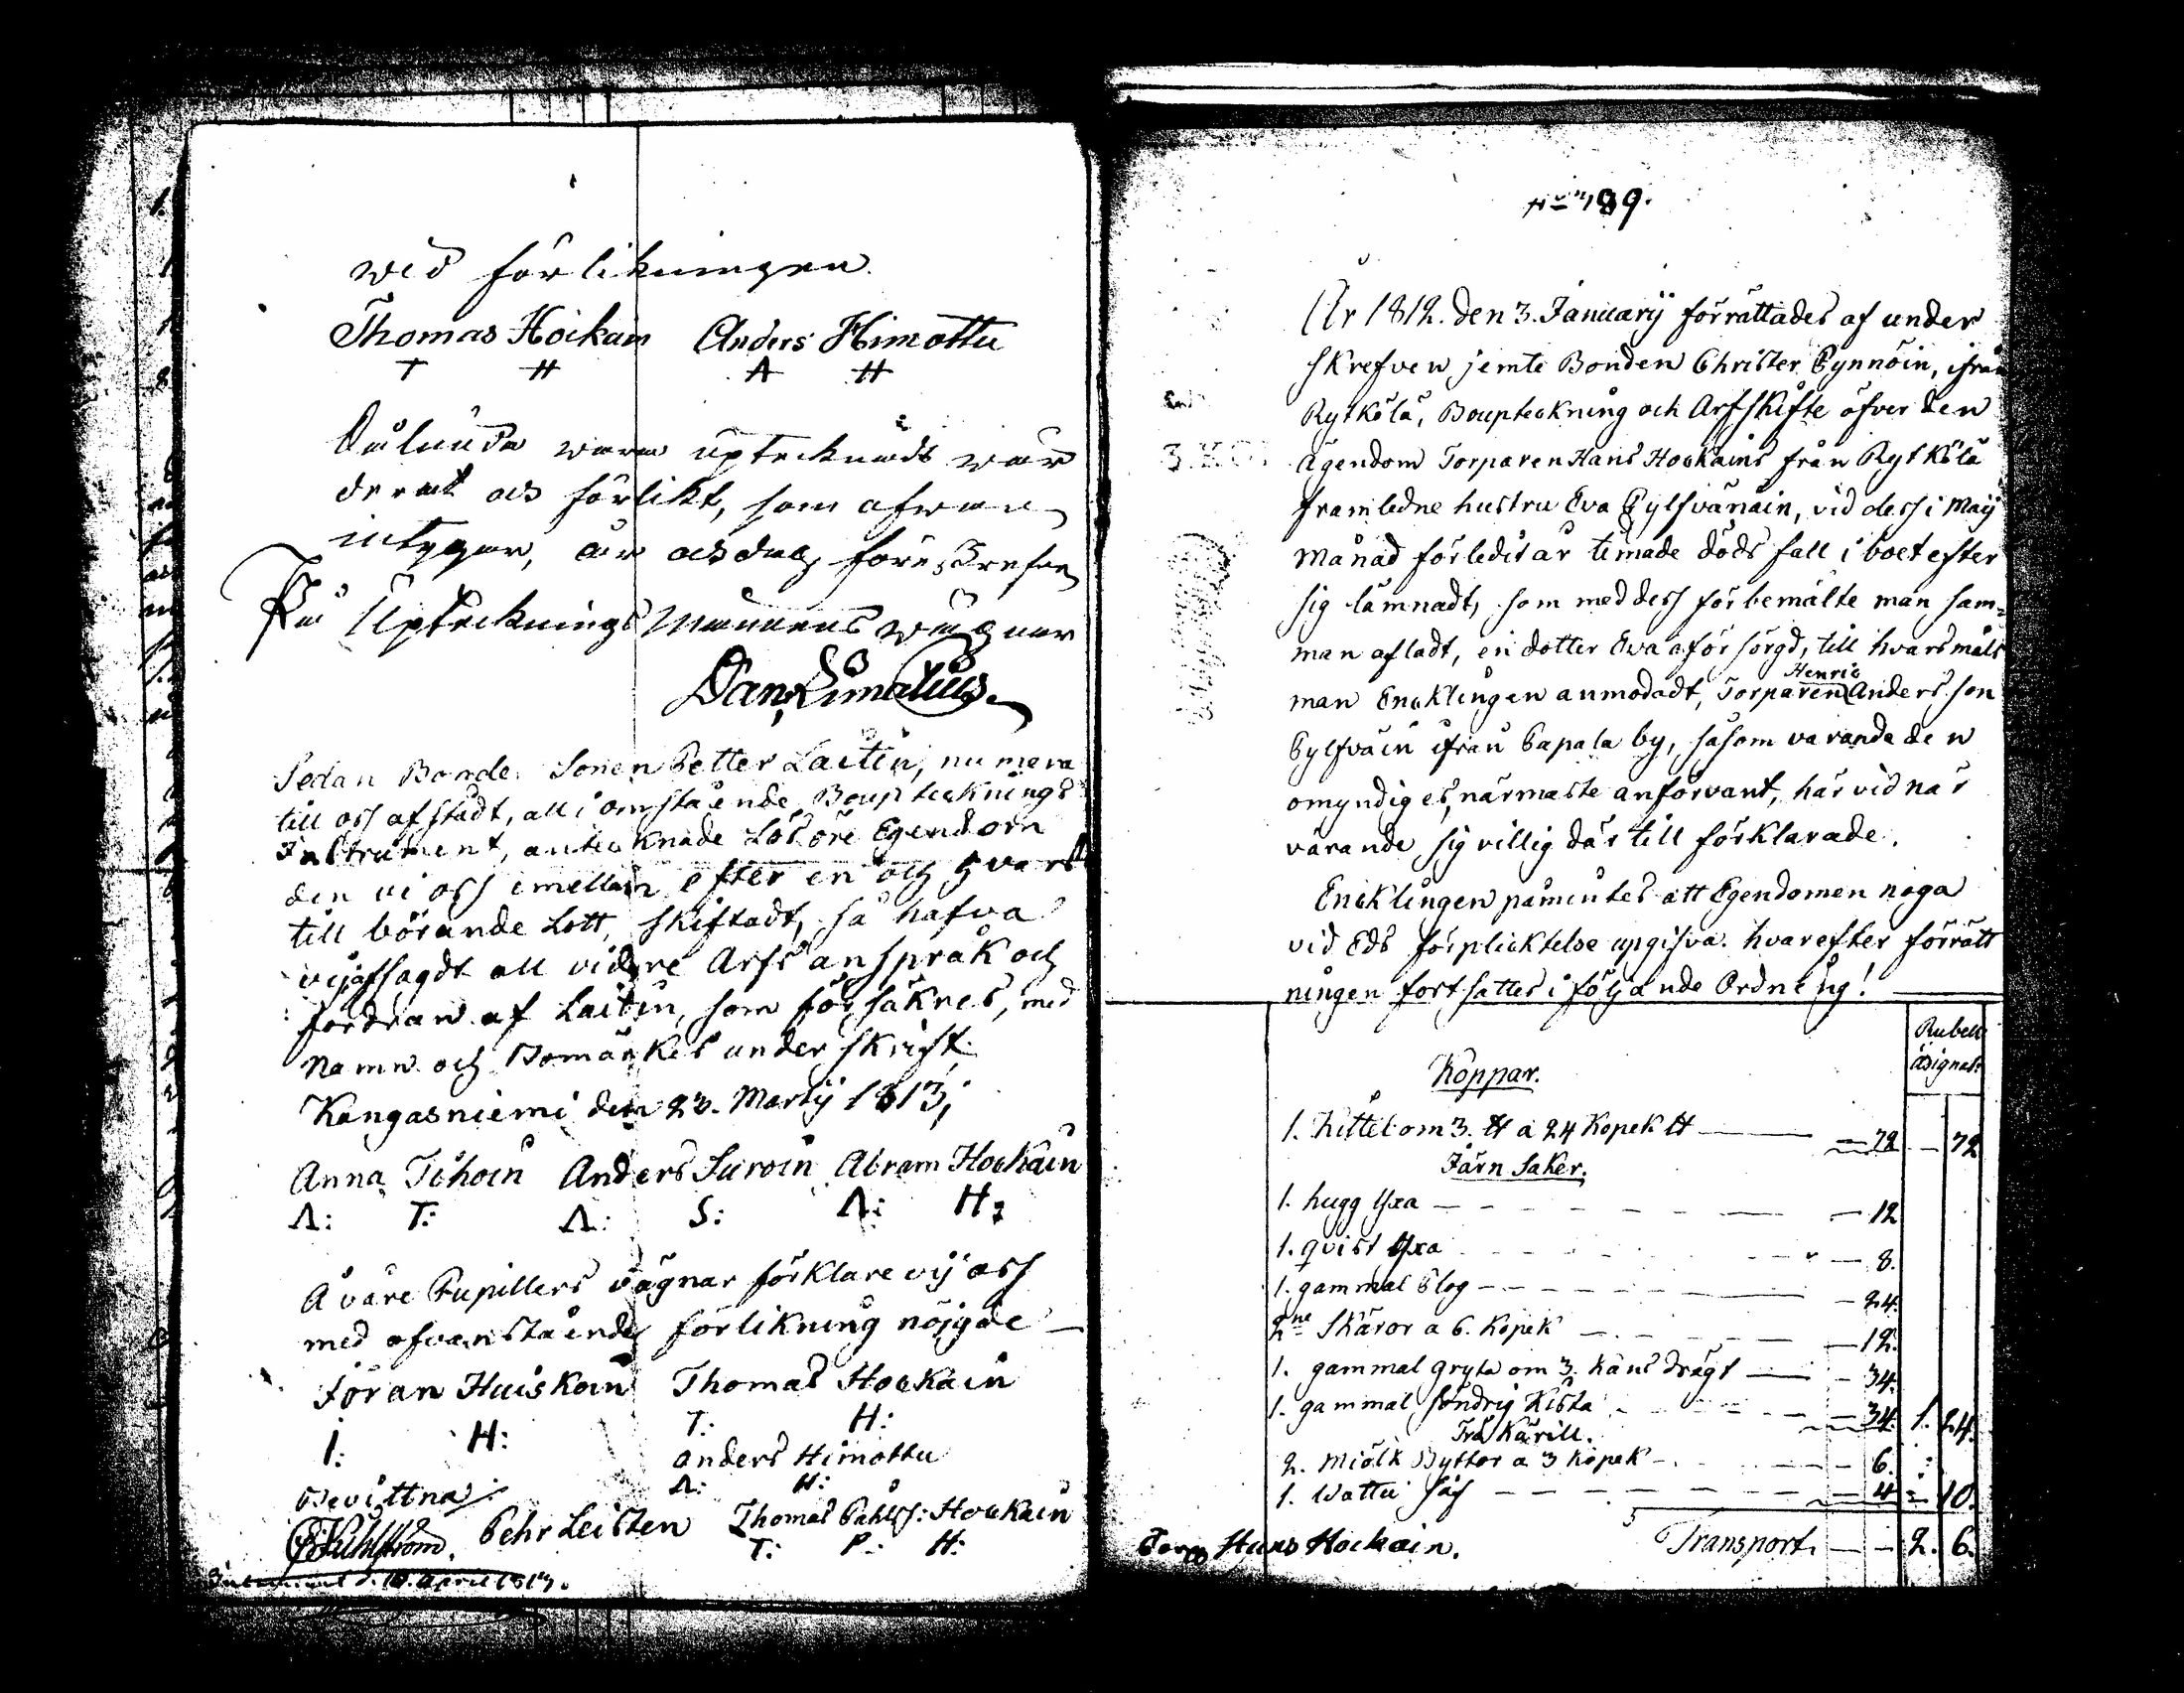 wid förlikningen.
Thomas Hoikain Anders Himottu
T H A H
Sålunda vara upteknadt wär
derat och förlikt, som ofwan
intygar, år och dag föreskrefne
På Upteckningsmannens wägnar
Dan Limatius
Sedan Bonde Sonen Petter Laitin, numera
till oss afstådt, all i omstående Boupteknings
Instrument, anteknade Lösöre Egendom
den vi oss emellan efter en och hvars
till börande Lott, skiftadt, så hafva
vij afsagdt all vidare Arfs anspråk och
fordran af Laitin, som försäkres, med
namn och Bomärkes under skrift.
Kangasniemi den 23. Martij 1813,
Anna Tihoin Anders Suroin Abram Hockain
A: T: A: S: A: H:
Å våre Pupillers vägnar förklare vij oss
med ofvanstående förlikning nöjgde
Jöran Huiskoin Thomas Hockain
I: H: T: H:
Anders Himottu
A: H:
Bevittna:
Pehr Leisten Thomas Påhlss: Hockain
T: P: H:
d. 10. April 1813.
No 189.
År 1812. den 3. Januarij förrättades af under
skrefven jemte Bonden Christer Pynnöin, ifrån
Rytkölä, Boupteckning och Arfskifte öfver den
ägendom Torparen Hans Hockains från Rytkölä
framledne hustru Eva Pylfvänäin, vid dess i Maij
Månad förledit år timade döds fall i boet efter
sig lämnadt, som med dess förbemälte man sam=
man afladt, en dotter Eva oförsörgd, till hvars måls
Henric
man Encklingen anmodadt, Torparen Andersson
Pylfväin ifrån Papala by, såsom varande den
omyndiges, närmaste anförvant, här vid när
värande sig villig där till förklarade.
Encklingen påmintes att Egendomen noga
vid Eds förplicktelse upgifva. hvarefter förrätt
ningen fortsattes i följande Ordning!
Rubel
Assignat:
Koppar.
1. kittel om 3. ℔ a 24 Kopek ℔ — 72 — 72
Järn Saker.
1. hugg Yxa — 12
1. qvist Yxa — 8.
1. gammal Plog — 24.
2ne Skäror a 6. Kopek — 12.
1. gammal gryta om 3. kans drägt — 34.
1. gammal söndrig Kista — 34. 1. 24.
Trä Kärill.
2. Miölk Byttor a 3 Kopek — 6.
1. Wattu såf — 4 — 10.
Transport — 2. 6.
Torp Hans Hockain.